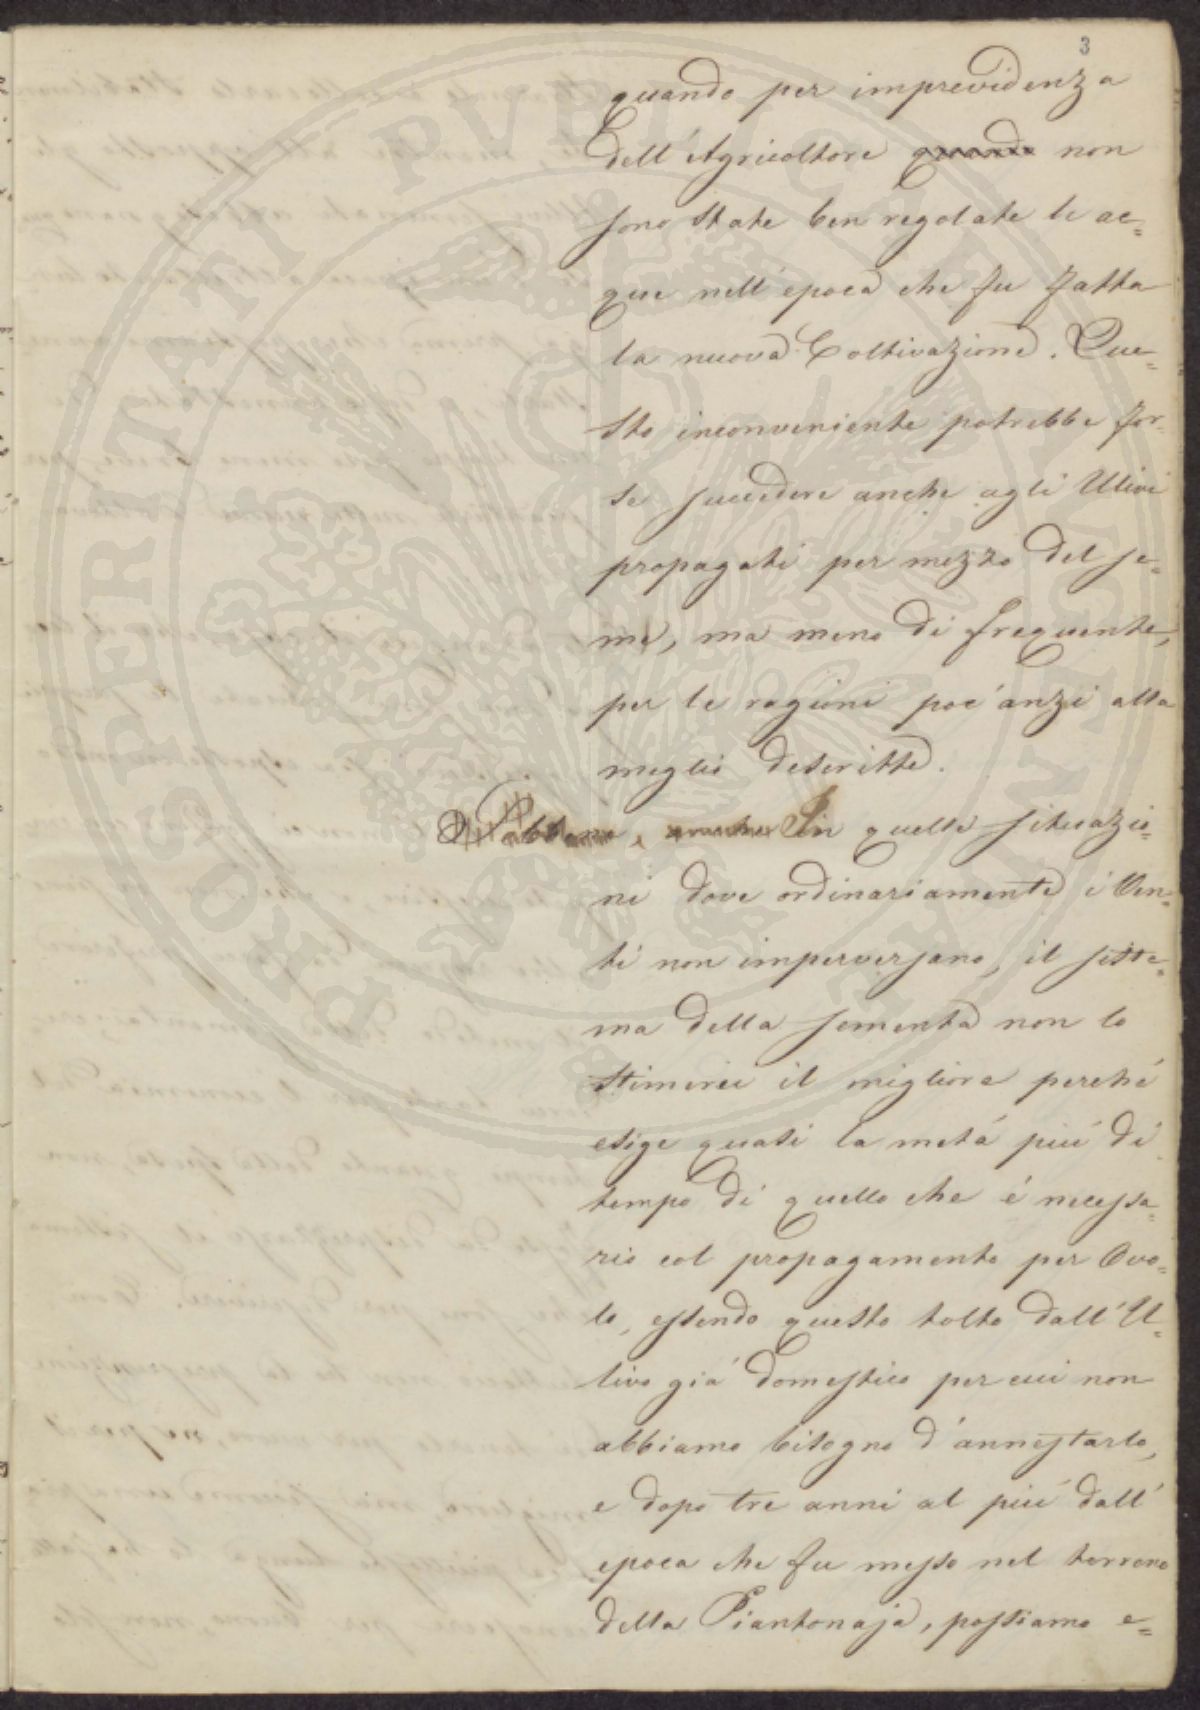 3
quando per imprevidenza
dell'Agricoltore quando non
sono state ben regolate le ac=
que nell'epoca che fu fatta
la nuova Coltivazione. Que=
sto inconveniente potrebbe for=
se succedere anche agli Ulivi
propagati per mezzo del se=
me, ma meno di frequente,
per le ragioni poc'anzi alla
meglio descritte.
In quelle situazio=
ni dove ordinariamente i Ven=
ti non imperversano, il siste=
ma della sementa non lo
stimerei il migliore perché
esige quasi la metá piú di
tempo di quello che é necessa=
rio col propagamento per Ovo=
lo, essendo questo tolto dall'U=
livo giá domestico per cui non
abbiamo bisogno d'annestarlo,
e dopo tre anni al piú dall'
epoca che fu messo nel terreno
della Piantonaja, possiamo e=
PROSPERITATI PVBLICAE AVGENDAE